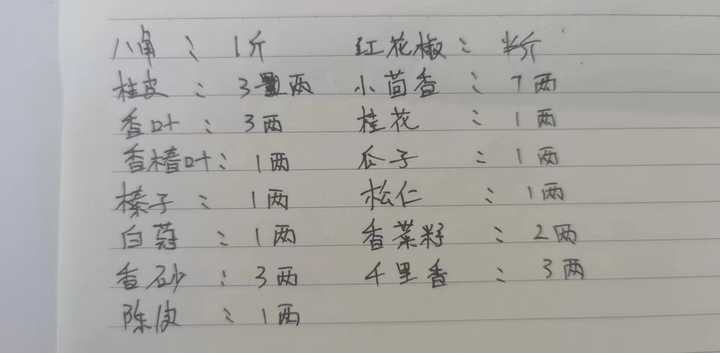 八角：1斤 红花椒：半斤
桂皮：3两 小茴香：7两
香叶：3两 桂花：1两
香椿叶：1两 瓜子：1两
榛子：1两 松仁：1两
白蔻：1两 香菜籽：2两
香砂：3两 千里香：3两
陈皮：1两